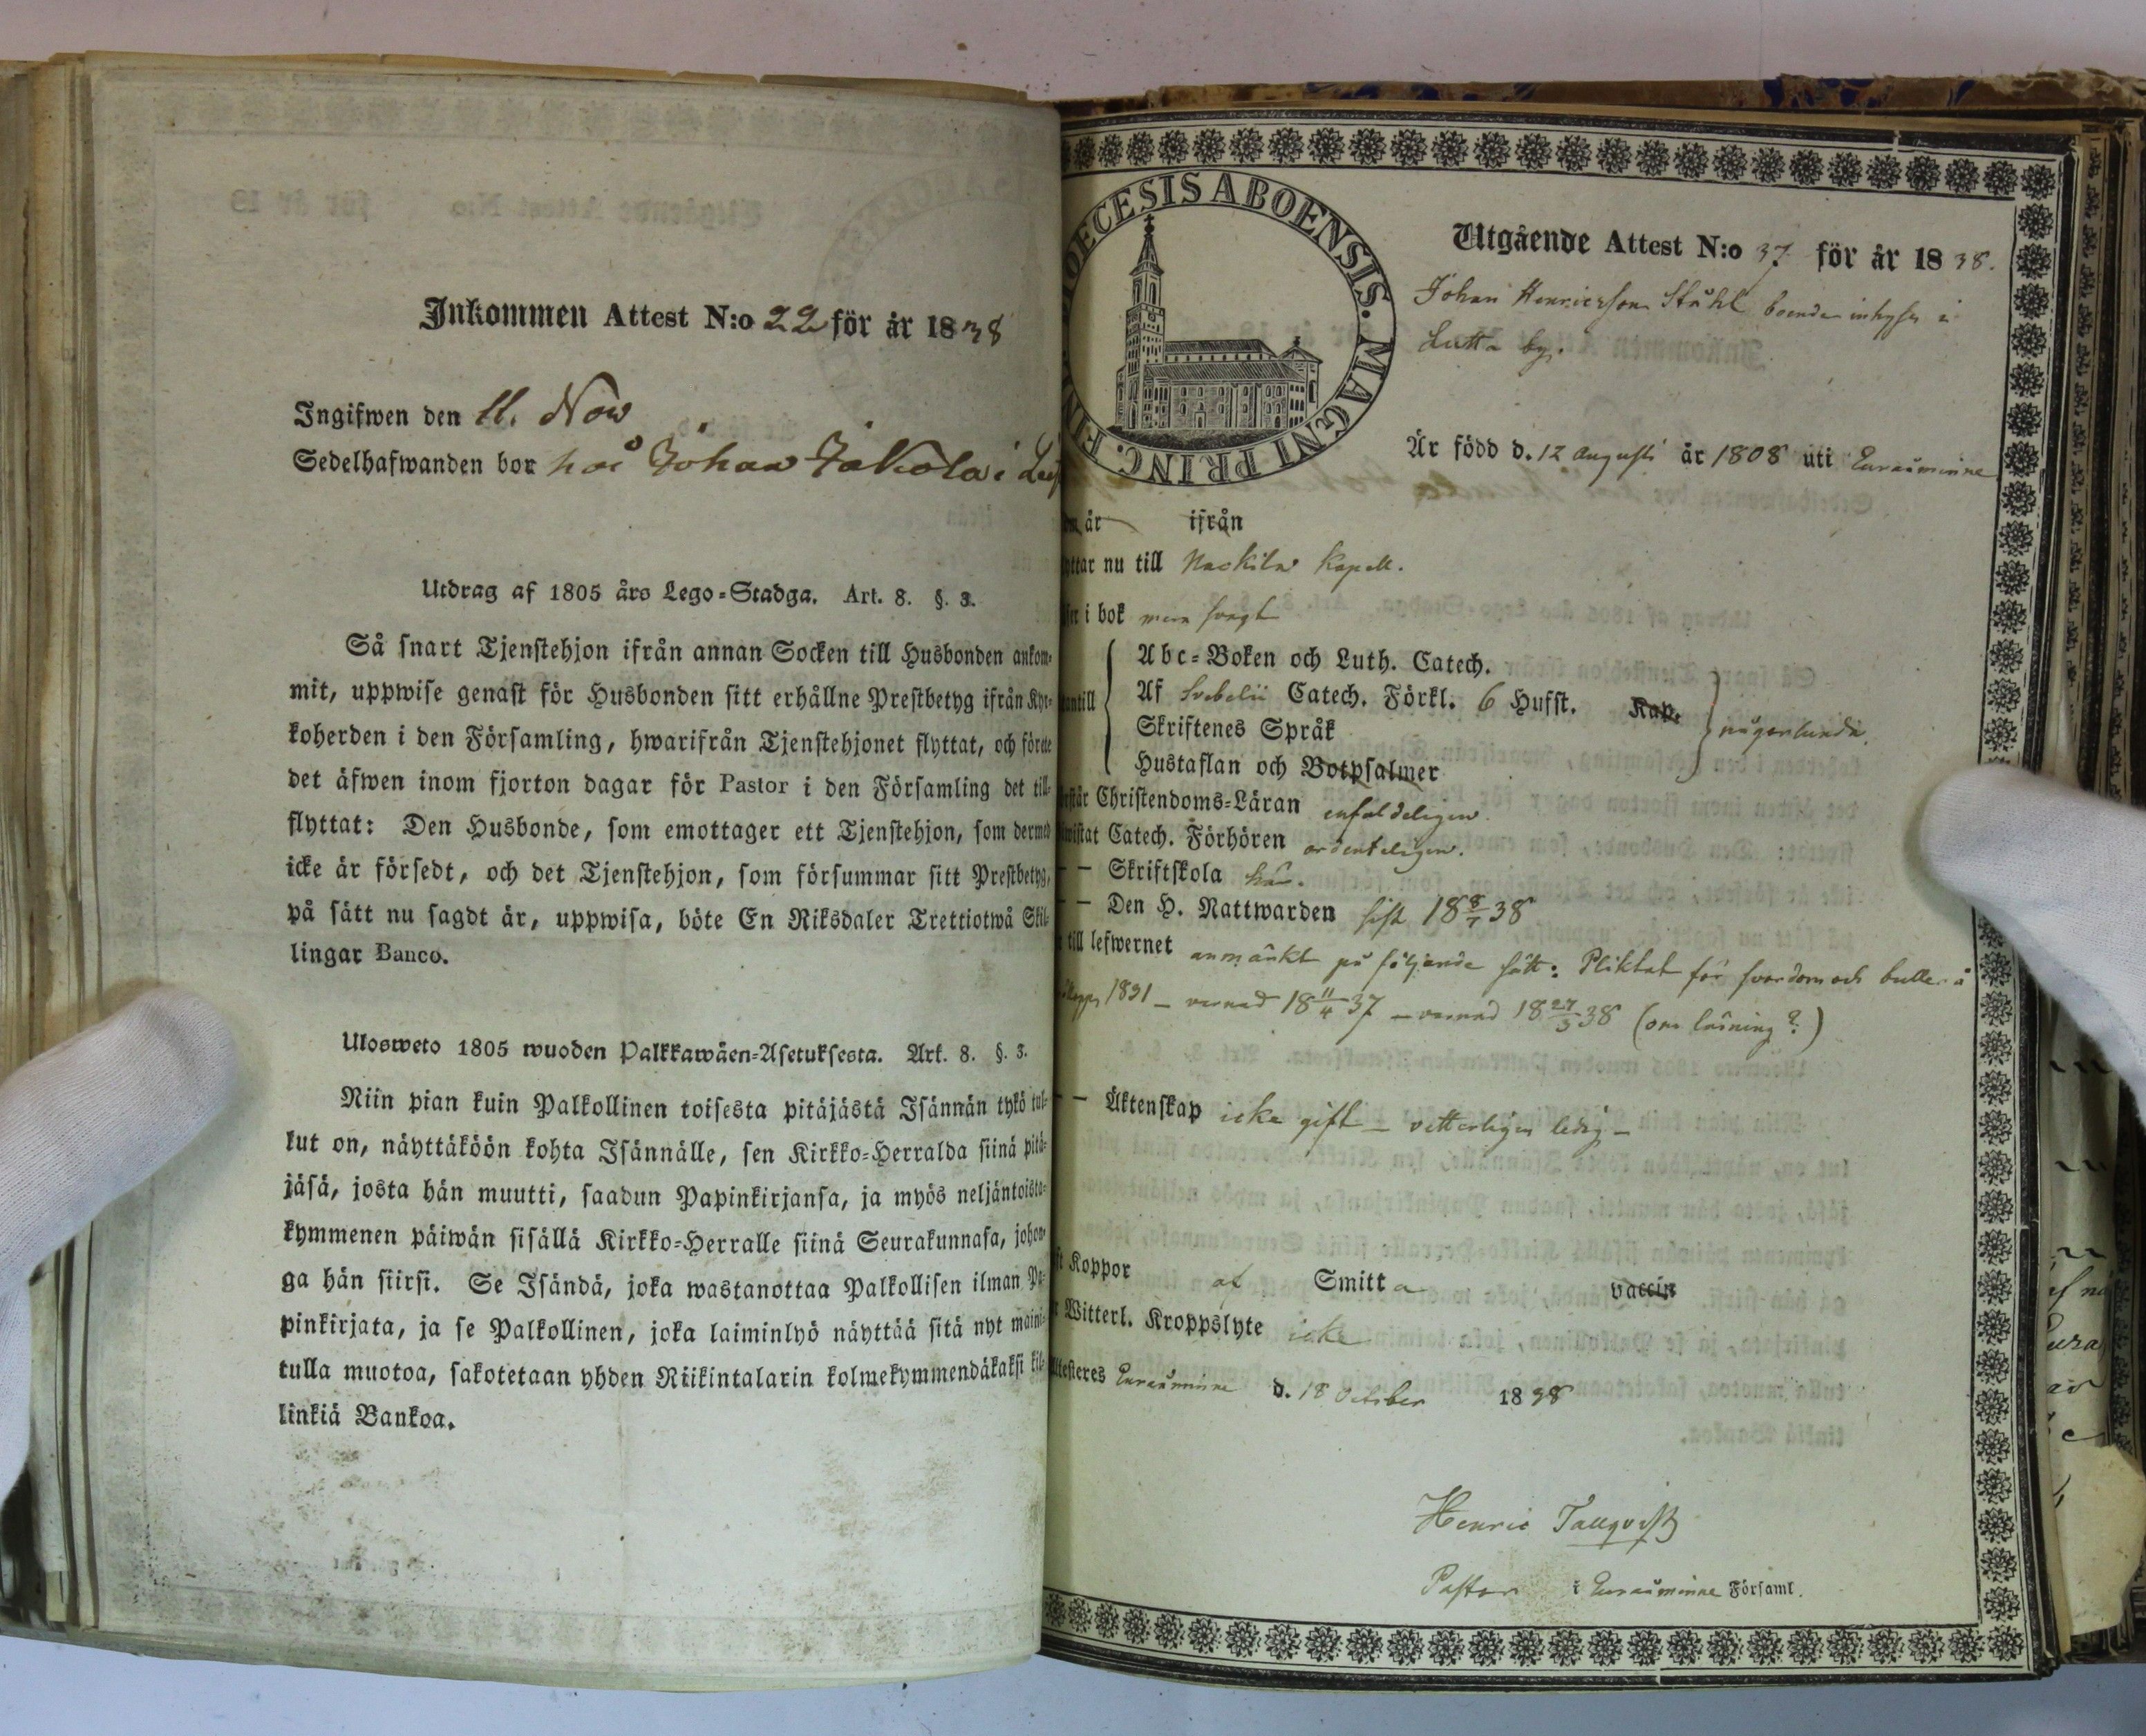 Inkommen Attest N:o 22 för år 1838
Ingifwen den 11. Nov
Sedelhafwanden bor hos Johan Jakola i
Utdrag af 1805 års Lego-Stadga. Art. 8. §. 3.
Så snart Tjenstehjon ifrån annan Socken till Husbonden ankom-
mit, uppwise genast för Husbonden sitt erhållne Prestbetyg ifrån Kyr-
koherden i den Församling, hwarifrån Tjenstehjonet flyttat, och förete
det äfwen inom fjorton dagar för Pastor i den Församling det till-
flyttat: Den Husbonde, som emottager ett Tjenstehjon, som dermed
icke är försedt, och det Tjenstehjon, som försummar sitt Prestbetyg,
på sätt nu sagdt är, uppwisa, böte En Riksdaler Trettiotwå Skil-
lingar Banco.
Ulosweto 1805 wuoden Palkkawäen-Asetuksesta. Art. 8. §. 3.
Niin pian kuin Palkollinen toisesta pitäjästä Isännän tykö tul-
lut on, näyttäköön kohta Isännälle, sen Kirkko-Herralda siinä pitä-
jäsä, josta hän muutti, saadun Papinkirjansa, ja myös neljäntoista-
kymmenen päiwän sisällä Kirkko-Herralle siinä Seurakunnasa, johon-
ga hän siirsi. Se Isändä, joka wastanottaa Palkollisen ilman Pa-
pinkirjata, ja se Palkollinen, joka laiminlyö näyttää sitä nyt maini-
tulla muotoa, sakotetaan yhden Riikintalarin kolmekymmendäkaksi kil-
linkiä Bankoa.
DIOECESIS ABOENSIS. MAGNI PRINC. FINL.
Utgående Attest N:o 37 för år 1838.
Johan Henricsson Ståhl boende inhyses i
Lutta by.
Är född d. 12 Augusti år 1808 uti Euraåminne
år ifrån
nu till Nackila Kapell.
i bok mera svagt
Abc-Boken och Luth. Catech.
Af Svebelii Catech. Förkl. 6 Hufst. Kap.
Skriftenes Språk
Hustaflan och Botpsalmer
någorlunda.
Christendoms-Läran enfaldeligen.
Catech. Förhören ordenteligen.
— Skriftskola här.
— Den H. Nattwarden sist 18 8/7 38
till lefwernet anmärkt på följande sätt: Pliktat för svordom och buller å
1831 – varnad 18 11/4 37 – varnad 18 27/3 38 (om läsning?)
— Äktenskap icke gift – vetterligen ledig –
Koppor af Smitta vaccin
Witterl. Kroppslyte icke
Attesteres Euraåminne d. 18 October 1838
Henric Tallqvist
Pastor i Euraåminne Församl.